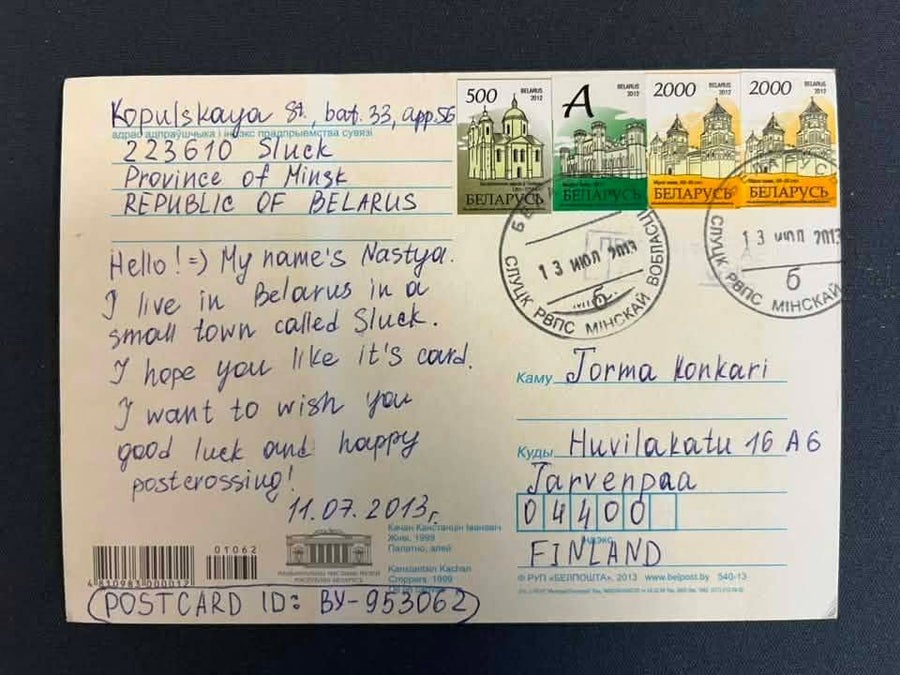 Kopulskaya St., bat. 33, app. 56
адрас адпраўшчыка і індэкс прадпрыемства сувязі
223610 Sluck
Province of Minsk
REPUBLIC OF BELARUS
Hello! =) My name's Nastya.
I live in Belarus in a
small town called Sluck.
I hope you like it's card.
I want to wish you
good luck and happy
postcrossing!
11.07.2013г.
500
BELARUS
2012
БЕЛАРУСЬ
A
BELARUS
2012
БЕЛАРУСЬ
2000
BELARUS
2012
БЕЛАРУСЬ
2000
BELARUS
2012
БЕЛАРУСЬ
СЛУЦК РВПС МІНСКАЙ ВОБЛАСЦІ
13 ИЮЛ 2013
б
СЛУЦК РВПС МІНСКАЙ
13 ИЮЛ 2013
б
Каму Jorma Konkari
Куды Huvilakatu 16 A 6
Jarvenpaa
04400
Індэкс
FINLAND
© РУП «БЕЛПОШТА», 2013 www.belpost.by 540-13
Качан Канстанцін Іванавіч
Жніві, 1999
Палатно, алей
Konstantin Kachan
Croppers, 1999
01062
4810983000012
НАЦЫЯНАЛЬНЫ МАСТАЦКІ МУЗЕЙ
РЭСПУБЛІКІ БЕЛАРУСЬ
POSTCARD ID: BY-953062